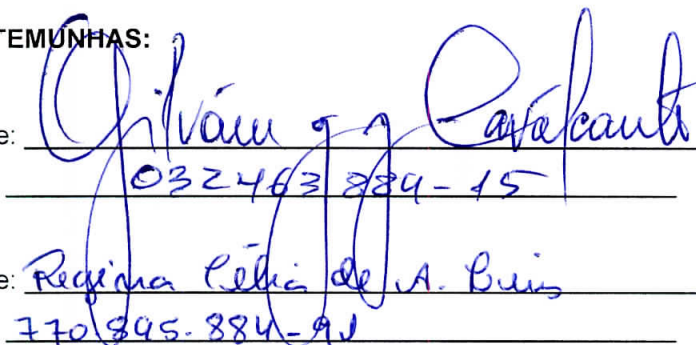 TEMUNHAS:
e: Gilvám g g Cavalcanti
032463884-15
e: Regina Célia de A.
770895.884-91